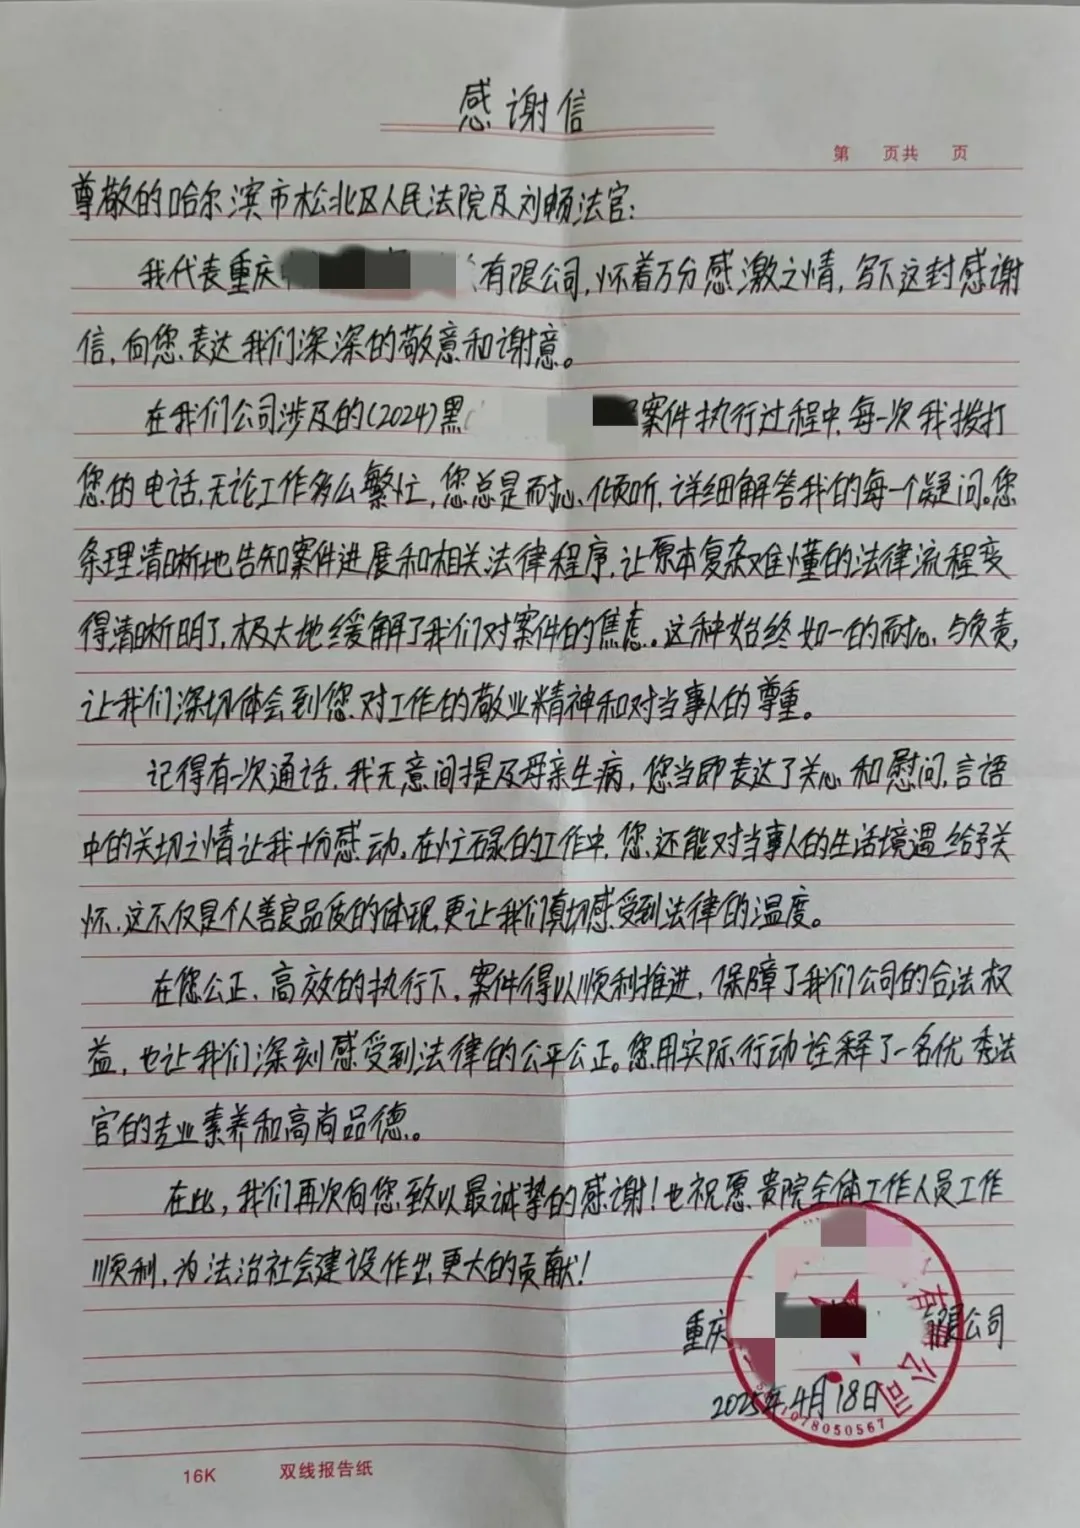 感谢信
第 页共 页
尊敬的哈尔滨市松北区人民法院及刘畅法官：
我代表重庆 有限公司，怀着万分感激之情，写下这封感谢
信，向您表达我们深深的敬意和谢意。
在我们公司涉及的(2024)黑 案件执行过程中，每一次我拨打
您的电话，无论工作多么繁忙，您总是耐心倾听，详细解答我的每一个疑问。您
条理清晰地告知案件进展和相关法律程序，让原本复杂难懂的法律流程变
得清晰明了，极大地缓解了我们对案件的焦虑。这种始终如一的耐心与负责，
让我们深切体会到您对工作的敬业精神和对当事人的尊重。
记得有一次通话，我无意间提及母亲生病，您当即表达了关心和慰问，言语
中的关切之情让我十份感动。在忙碌的工作中，您还能对当事人的生活境遇给予关
怀，这不仅是个人善良品质的体现，更让我们真切感受到法律的温度。
在您公正、高效的执行下，案件得以顺利推进，保障了我们公司的合法权
益，也让我们深刻感受到法律的公平公正。您用实际行动诠释了一名优秀法
官的专业素养和高尚品德。
在此，我们再次向您致以最诚挚的感谢！也祝愿贵院全体工作人员工作
顺利，为法治社会建设作出更大的贡献！
重庆 有限公司
2025年4月18日
有限公司
1078050567
16K 双线报告纸